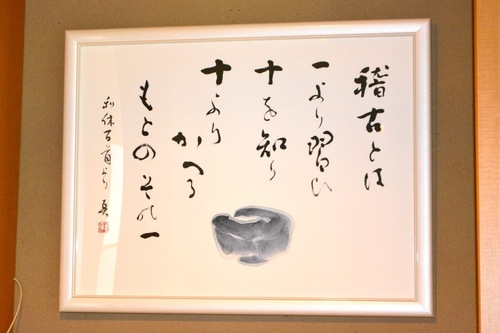 稽古とは
一より習ひ
十を知り
十より
かへる
もとのその一
利休百首より